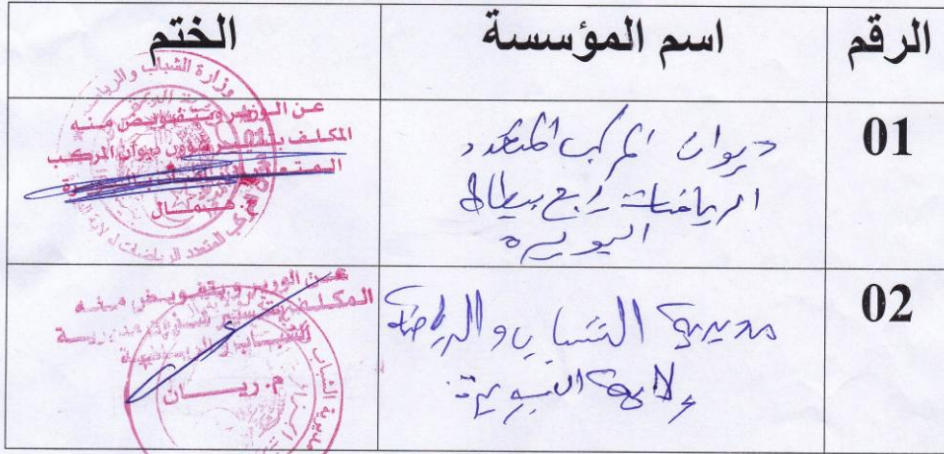 الرقم اسم المؤسسة الختم
01
ديوان المركب المتعدد
الرياضات رابح بيطاط
البويرة
وزارة الشباب والرياضة
عن الوزير وبتفويض منه
المكلف بتسيير شؤون ديوان المركب
المتعدد الرياضات
02
مديرية الشباب والرياضة
ولاية البويرة
عن الوزير وبتفويض منه
المكلف بتسيير شؤون مديرية
الشباب والرياضة
م. ريان